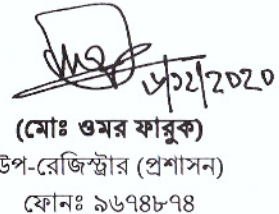 ১৬/১২/2020
(মোঃ ওমর ফারুক)
উপ-রেজিস্ট্রার (প্রশাসন)
ফোনঃ ৯৬৭৪৮৭৪